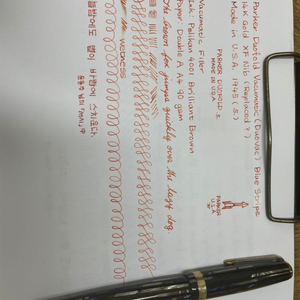 Parker Duofold Vacumatic (Duovac) Blue Stripe
14K Gold XF Nib (Replaced?)
Made in U.S.A. 1945 (5.)
PARKER DUOFOLD
MADE IN U.S.A.
PARKER
U.S.A
Vacumatic Filler
Ink: Pelikan 4001 Brilliant Brown
Paper: Double A A4 90 gsm
The brown fox jumps quickly over the lazy dog
wetness
오늘밤에도 별이 바람에 스치운다.
윤동주 님의 「서시」 中